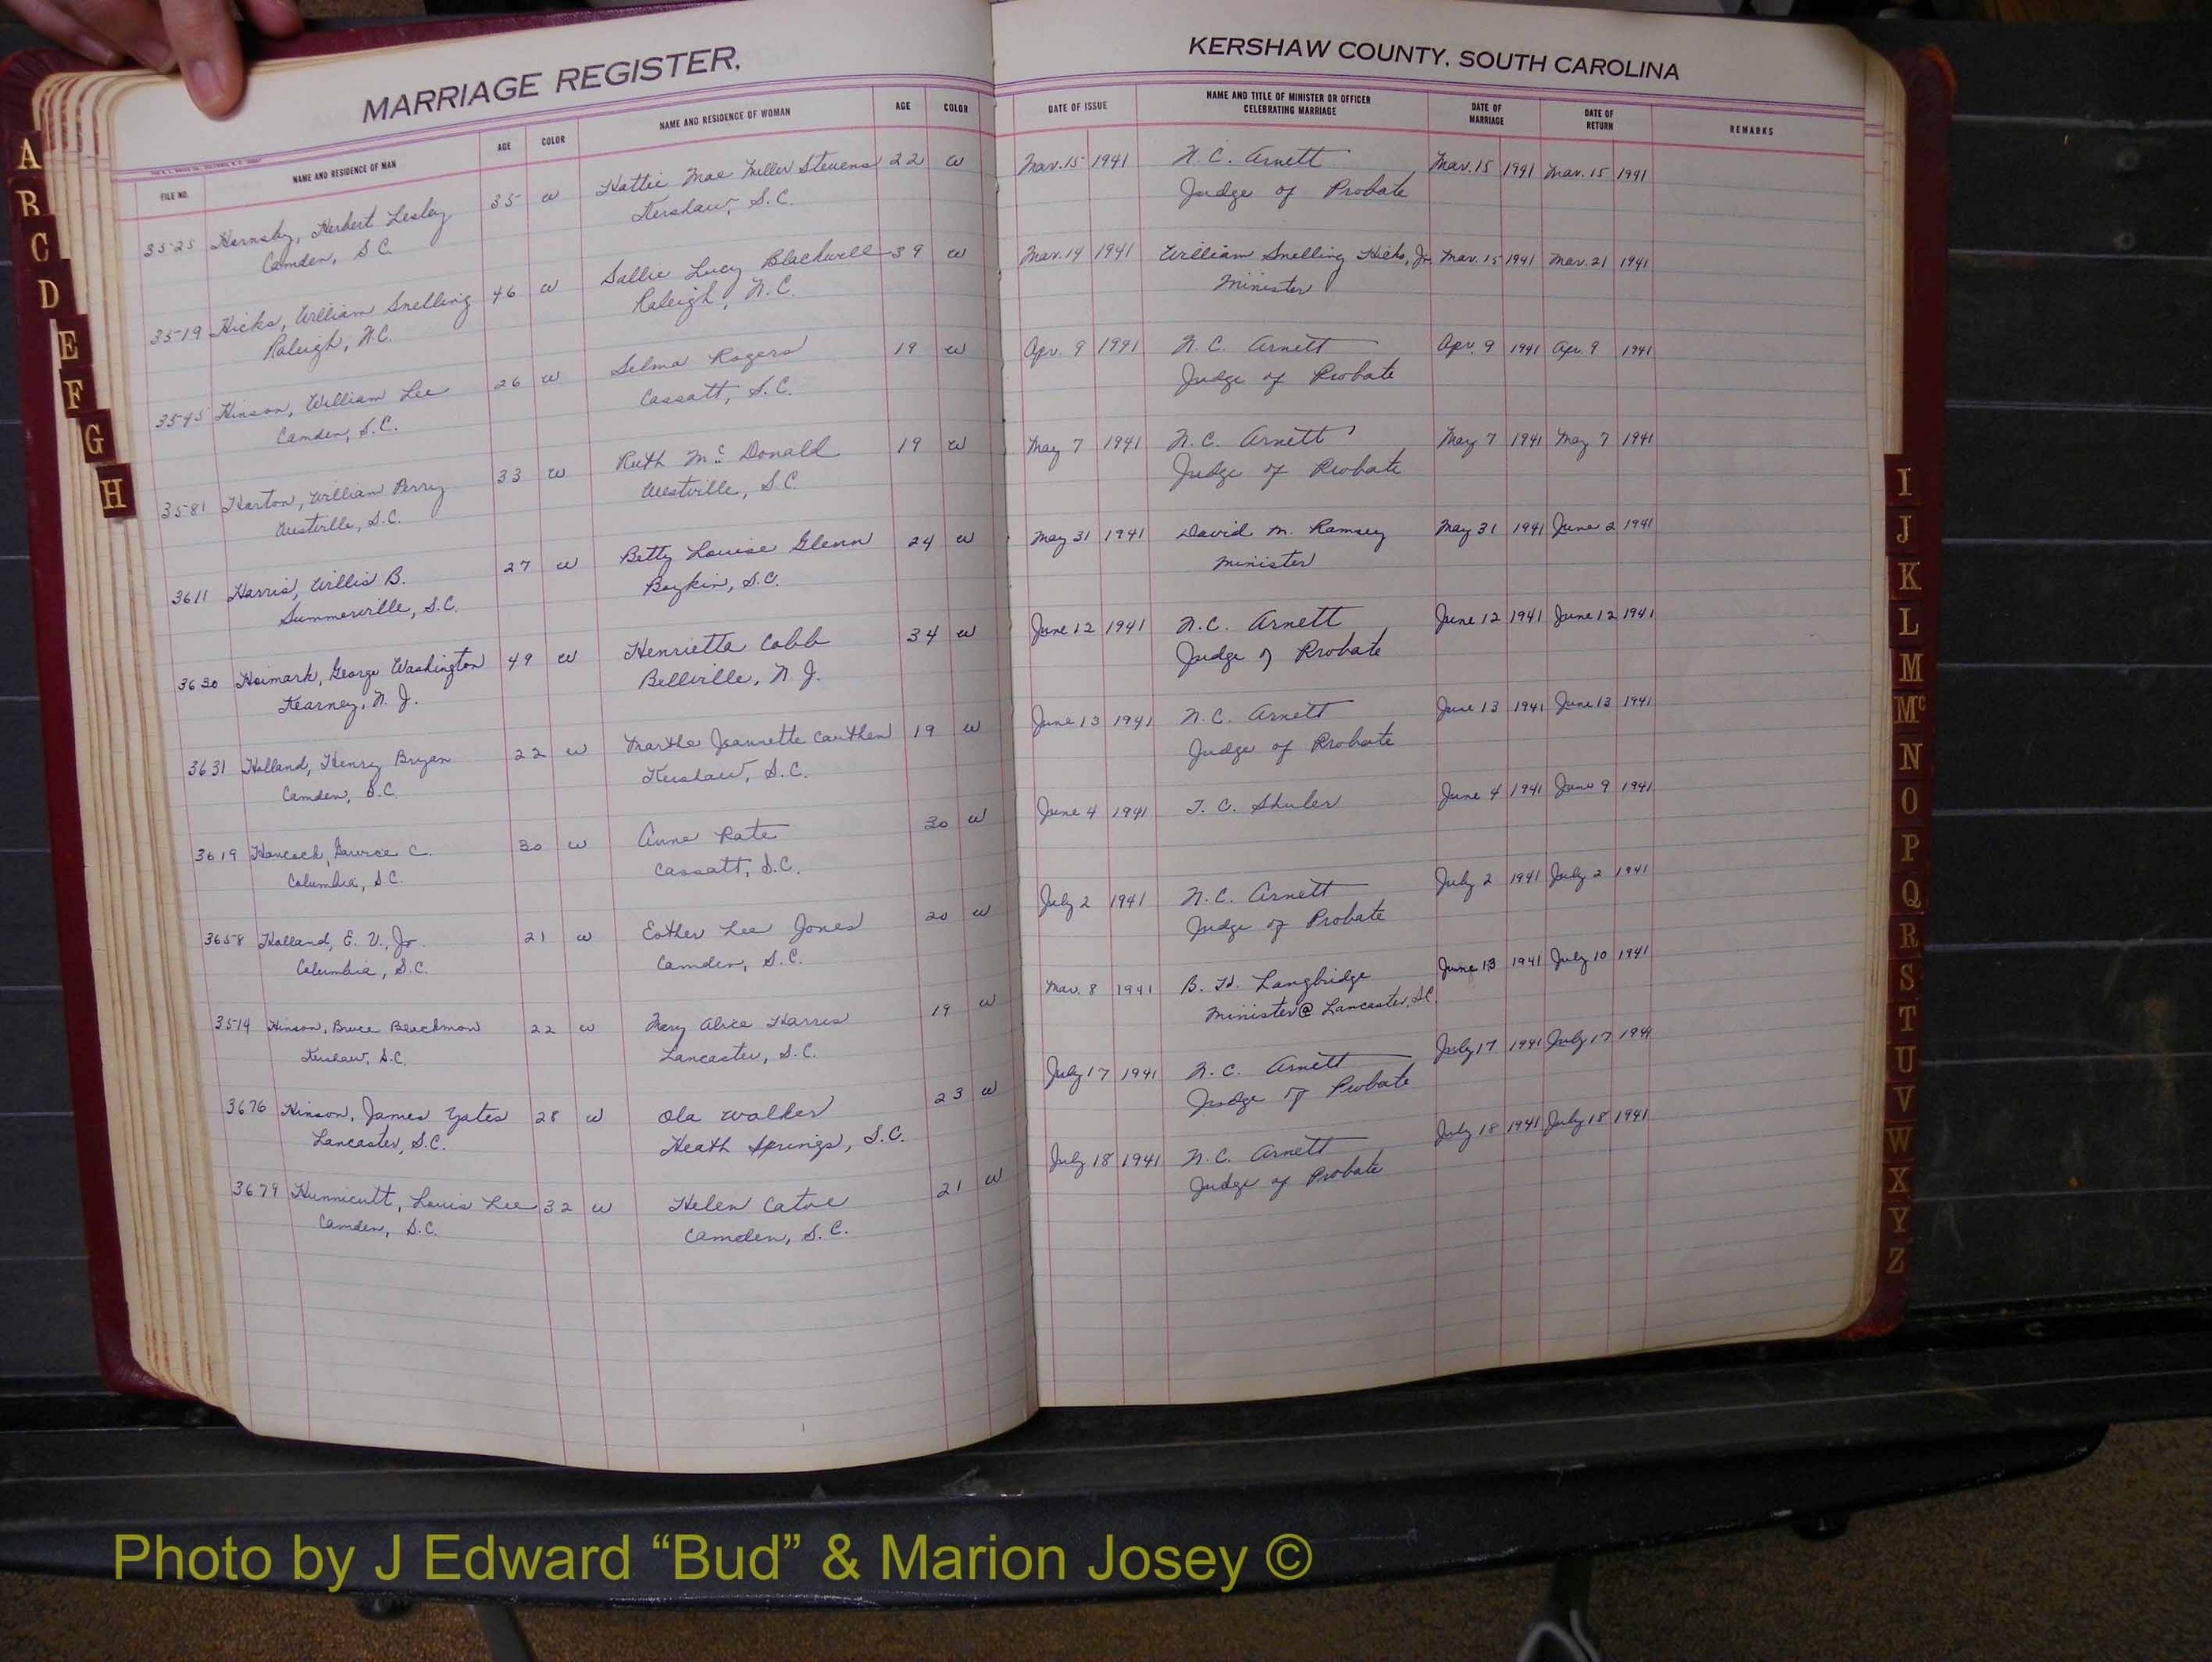 MARRIAGE REGISTER.
KERSHAW COUNTY, SOUTH CAROLINA
FILE NO. NAME AND RESIDENCE OF MAN AGE COLOR NAME AND RESIDENCE OF WOMAN AGE COLOR DATE OF ISSUE NAME AND TITLE OF MINISTER OR OFFICER CELEBRATING MARRIAGE DATE OF MARRIAGE DATE OF RETURN REMARKS
3525 Hornsby, Herbert Lesley 35 W Hattie Mae Miller Stevens 22 W Mar. 15 1941 N. C. Arnett Mar. 15 1941 Mar. 15 1941
Camden, S.C. Kershaw, S.C. Judge of Probate
3519 Hicks, William Snelling 46 W Sallie Lucy Blackwell 39 W Mar. 14 1941 William Snelling Hicks, Jr. Mar. 15 1941 Mar. 21 1941
Raleigh, N.C. Raleigh, N.C. Minister
3545 Hinson, William Lee 26 W Selma Rogers 19 W Apr. 9 1941 N. C. Arnett Apr. 9 1941 Apr. 9 1941
Camden, S.C. Cassatt, S.C. Judge of Probate
3581 Horton, William Perry 33 W Ruth Mc Donald 19 W May 7 1941 N. C. Arnett May 7 1941 May 7 1941
Westville, S.C. Westville, S.C. Judge of Probate
3611 Harris, Willis B. 27 W Betty Louise Glenn 24 W May 31 1941 David M. Ramsey May 31 1941 June 2 1941
Summerville, S.C. Boykin, S.C. Minister
3630 Hoimark, George Washington 49 W Henrietta Cobb 34 W June 12 1941 N.C. Arnett June 12 1941 June 12 1941
Kearney, N.J. Bellville, N.J. Judge of Probate
3631 Holland, Henry Bryan 22 W Martha Jeannette Cauthen 19 W June 13 1941 N.C. Arnett June 13 1941 June 13 1941
Camden, S.C. Kershaw, S.C. Judge of Probate
3619 Hancock, C. 30 W Anne Pate 30 W June 4 1941 T. C. Shuler June 4 1941 June 9 1941
Columbia, S.C. Cassatt, S.C.
3658 Holland, E. V., Jr. 21 W Esther Lee Jones 20 W July 2 1941 N.C. Arnett July 2 1941 July 2 1941
Columbia, S.C. Camden, S.C. Judge of Probate
3514 Hinson, Bruce 22 W Mary Alice Harris 19 W Mar. 8 1941 B. H. Langbridge June 13 1941 July 10 1941
Kershaw, S.C. Lancaster, S.C. Minister @ Lancaster, S.C.
3676 Hinson, James Yates 28 W Ola Walker 23 W July 17 1941 N.C. Arnett July 17 1941 July 17 1941
Lancaster, S.C. Heath Springs, S.C. Judge of Probate
3679 Hunnicutt, Louis Lee 32 W Helen Catoe 21 W July 18 1941 N.C. Arnett July 18 1941 July 18 1941
Camden, S.C. Camden, S.C. Judge of Probate
A
B
C
D
E
F
G
H
I
J
K
L
M
Mc
N
O
P
Q
R
S
T
U
V
W
X
Y
Z
Photo by J Edward “Bud” & Marion Josey ©